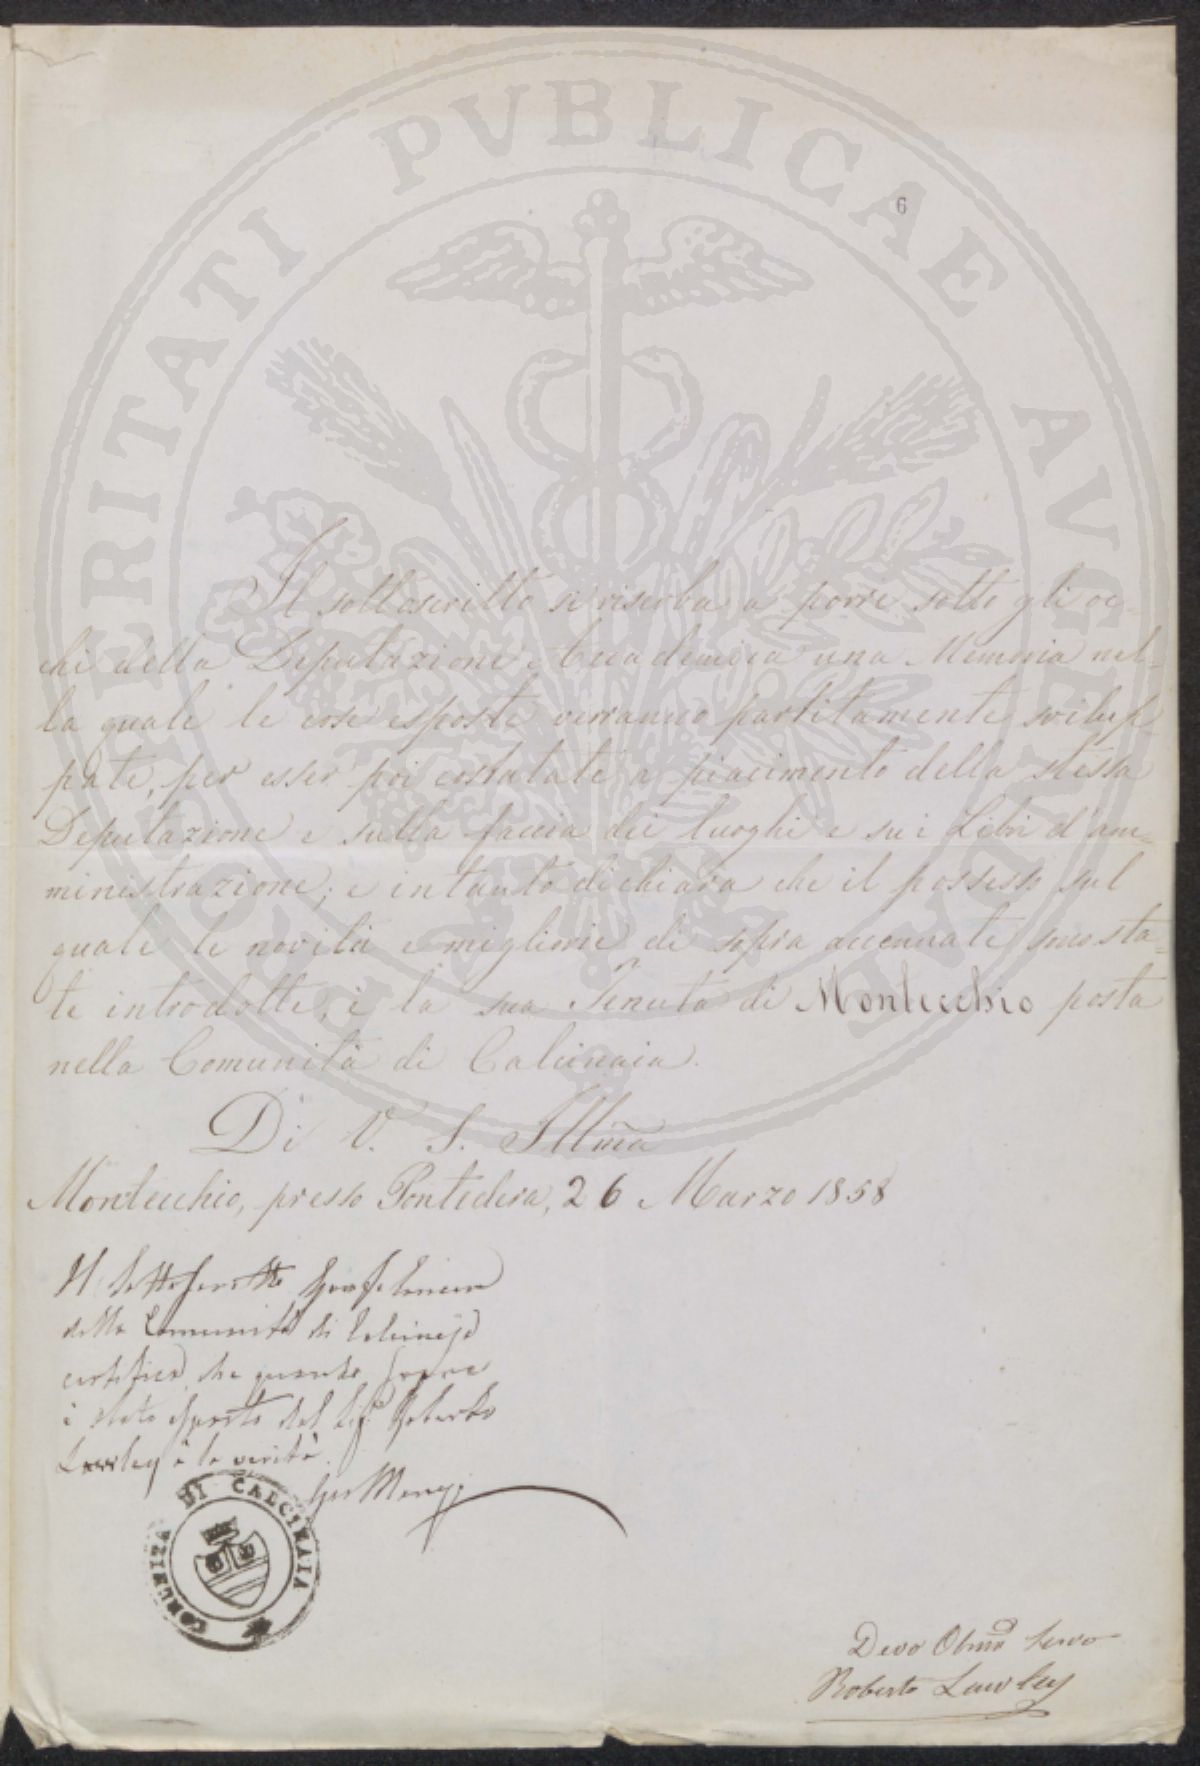 PROSPERITATI PVBLICAE AVGENDAE
6
Il sottoscritto si riserba a porre sotto gli oc-
chi della Deputazione Accademica una Memoria nel-
la quale le cose esposte verranno partitamente svilup-
pate, per esser poi costatate a piacimento della stessa
Deputazione e sulla faccia dei luoghi e sui Libri d'am-
ministrazione; e intanto dichiara che il possesso sul
quale le novità e migliorie di sopra accennate sono sta-
te introdotte, è la sua Tenuta di Montecchio posta
nella Comunità di Calcinaia.
Di V. S. Illma
Montecchio, presso Pontedera, 26 Marzo 1858
Il Sottoscritto Gonfaloniere
della Comunità di Calcinaja
certifica che quanto sopra
è stato esposto dal Sigr Roberto
Lawley è la verità.
COMUNITA DI CALCINAIA
Devo Obmo Servo
Roberto Lawley